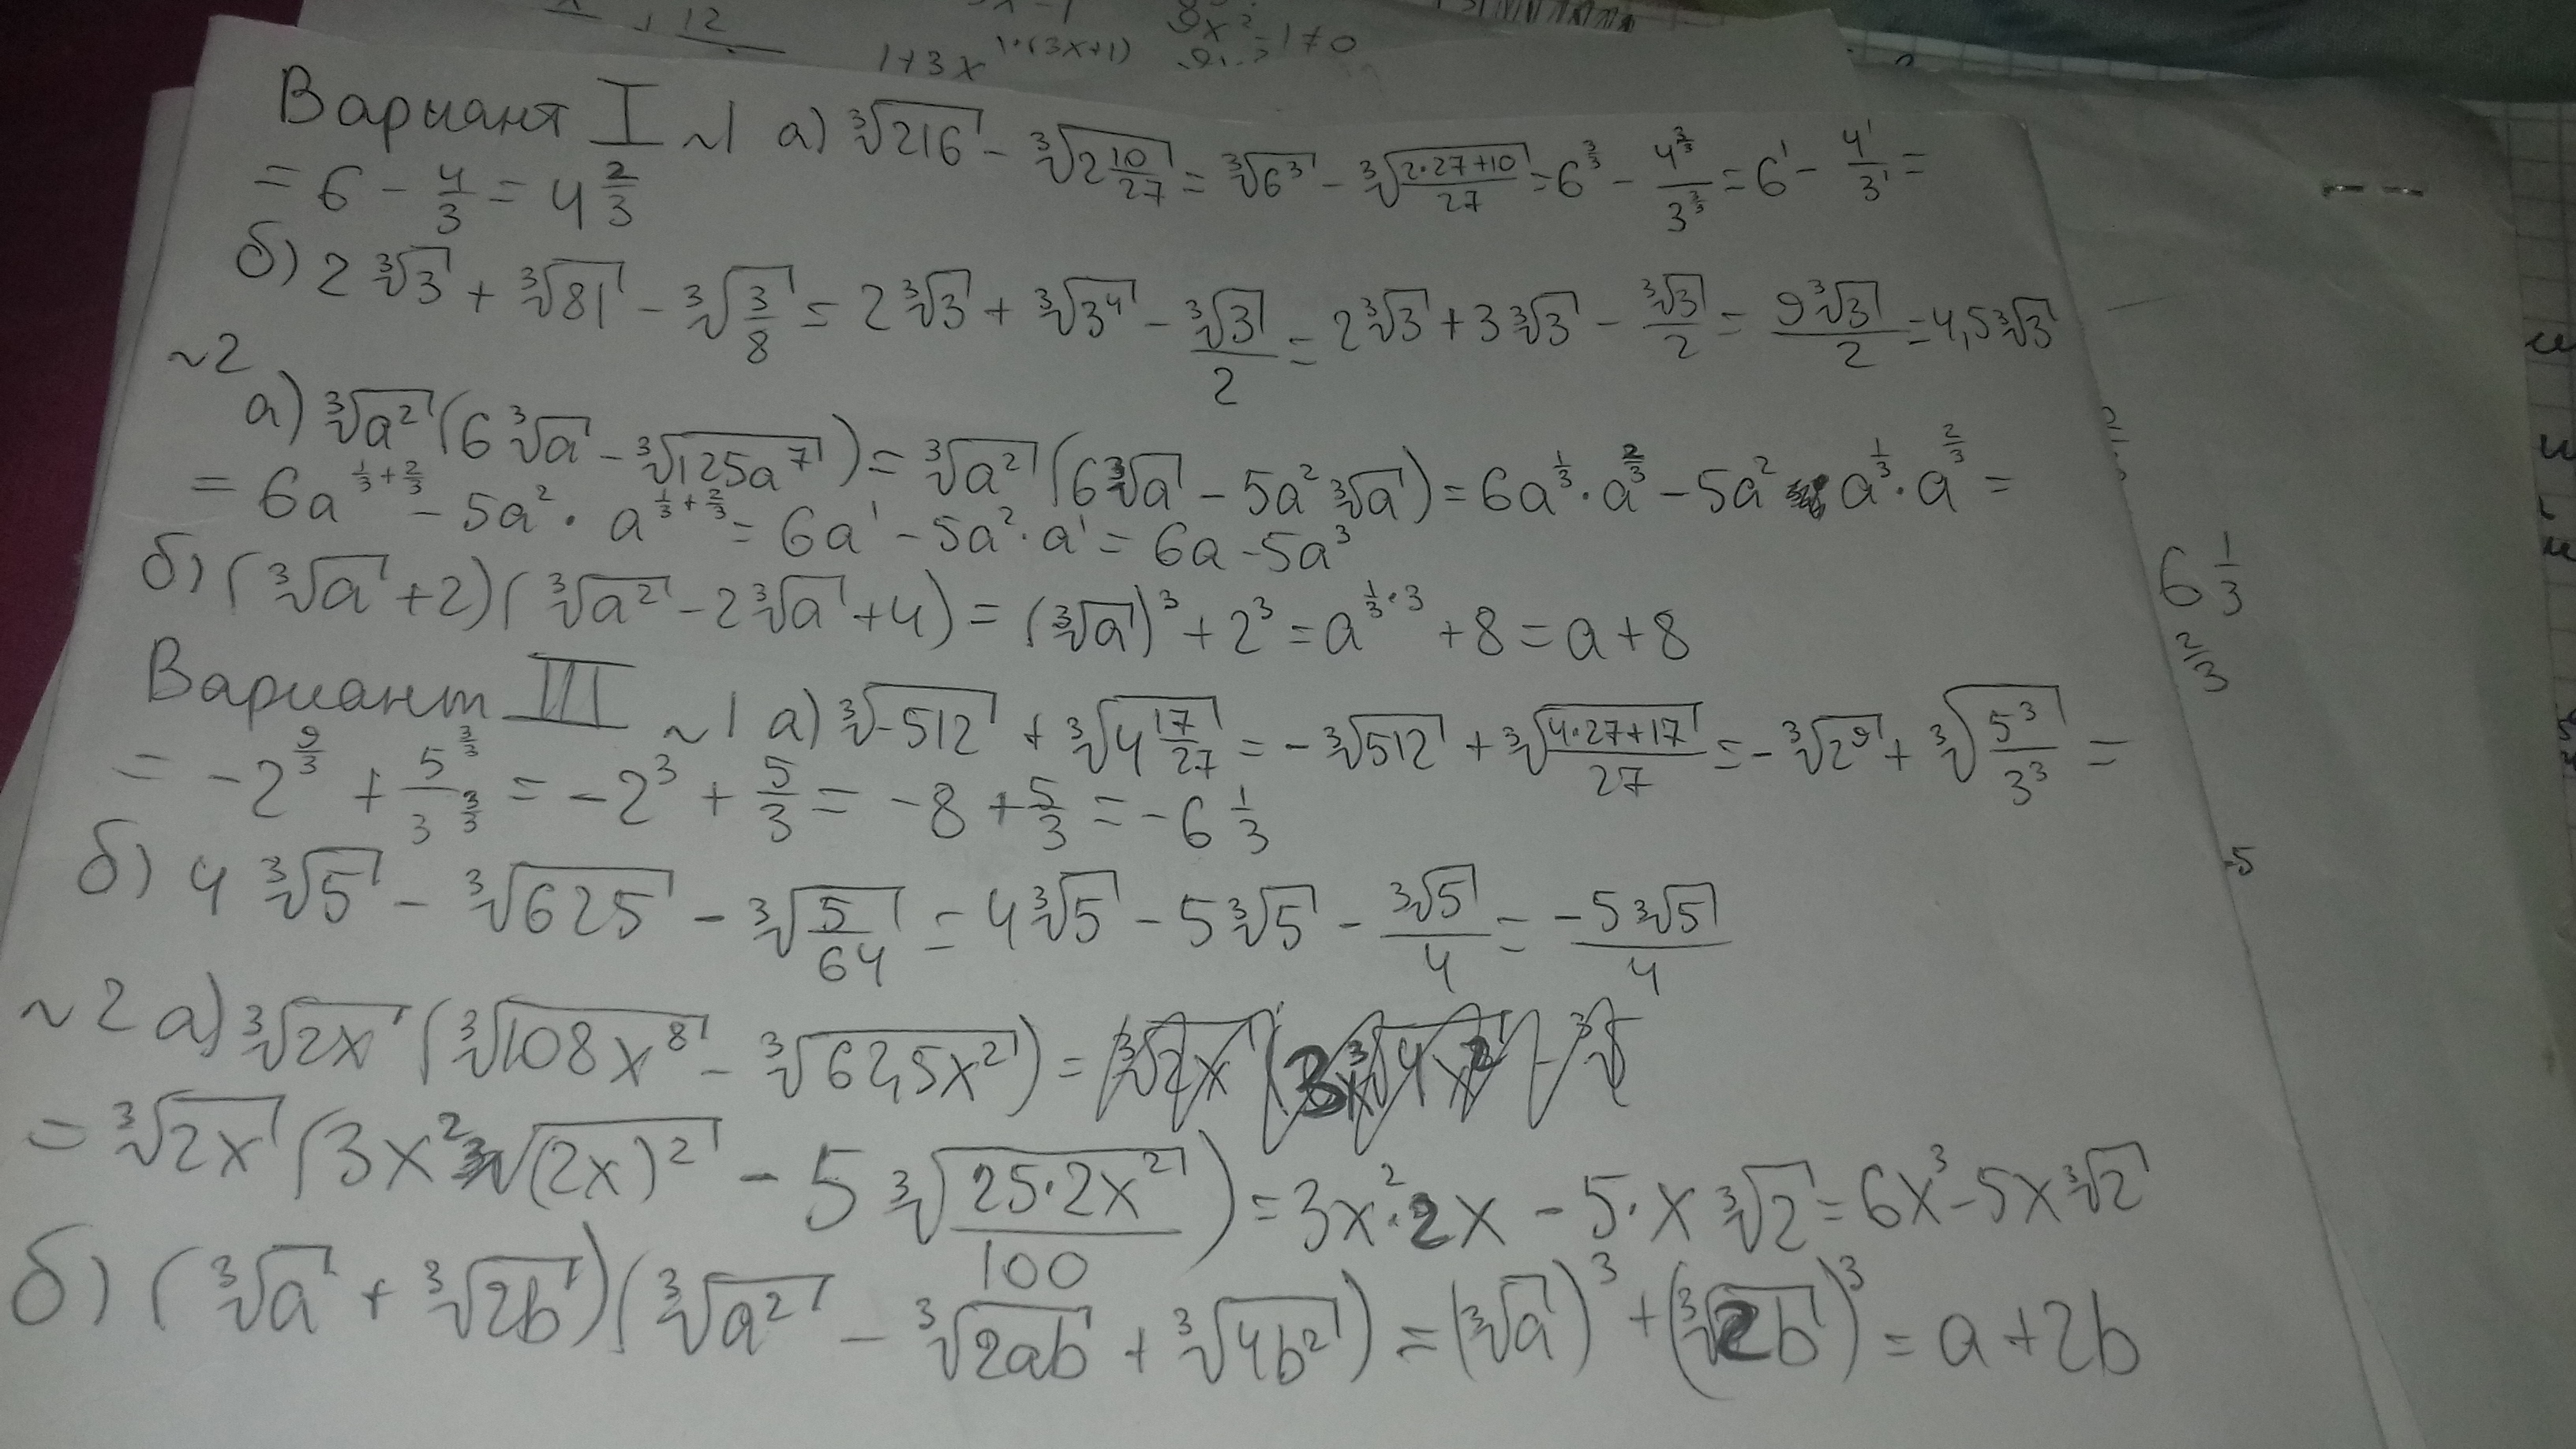 12
1+3x 1·(3x+1)
Вариант I ~1 а) ∛216 - ∛(2 10/27) = ∛6³ - ∛((2·27+10)/27) = 6^(3/3) - 4^(3/3)/3^(3/3) = 6¹ - 4¹/3¹ =
= 6 - 4/3 = 4 2/3
б) 2∛3 + ∛81 - ∛(3/8) = 2∛3 + ∛3⁴ - ∛3/2 = 2∛3 + 3∛3 - ∛3/2 = 9∛3/2 = 4,5∛3
~2
а) ∛a² (6∛a - ∛125a⁷) = ∛a² (6∛a - 5a²∛a) = 6a^(1/3) · a^(2/3) - 5a² a^(1/3) · a^(2/3) =
= 6a^(1/3+2/3) - 5a² · a^(1/3+2/3) = 6a¹ - 5a² · a¹ = 6a - 5a³
б) (∛a + 2)(∛a² - 2∛a + 4) = (∛a)³ + 2³ = a^(1/3·3) + 8 = a + 8
Вариант III ~1 а) ∛-512 + ∛(4 17/27) = -∛512 + ∛((4·27+17)/27) = -∛2⁹ + ∛(5³/3³) =
= -2^(9/3) + 5^(3/3)/3^(3/3) = -2³ + 5/3 = -8 + 5/3 = -6 1/3
б) 4∛5 - ∛625 - ∛(5/64) = 4∛5 - 5∛5 - ∛5/4 = -5∛5/4
~2 а) ∛2x (∛108x⁸ - ∛62,5x²) =
= ∛2x (3x²∛(2x)² - 5∛(25·2x²/100)) = 3x²·2x - 5·x∛2 = 6x³ - 5x∛2
б) (∛a + ∛2b)(∛a² - ∛2ab + ∛4b²) = (∛a)³ + (∛2b)³ = a + 2b
6 1/3
2/3
-5